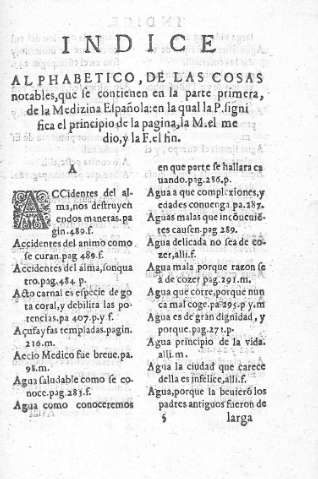 INDICE
ALPHABETICO, DE LAS COSAS
notables, que se contienen en la parte primera,
de la Medizina Española: en la qual la P. signi
fica el principio de la pagina, la M. el me
dio, y la F. el fin.
A
ACCidentes del al-
ma, nos destruyen
en dos maneras. pa
gin. 489. f.
Accidentes del animo como
se curan. pag 489. f.
Accidentes del alma, son qua
tro. pag. 484 p.
Acto carnal es especie de go
ta coral, y debilita las po
tencias. pa 407. p. y f.
Açufayfas templadas. pagin.
210. m.
Aecio Medico fue breue. pa.
98. m.
Agua saludable como se co
noce. pag. 283. f.
Agua como conoceremos
en que parte se hallara ca
uando. pag. 286. p.
Agua a que complexiones, y
edades conuenga pa. 287.
Aguas malas que incōuenié
tes causen. pag 289.
Agua delicada no sea de co-
zer, alli. f.
Agua mala porque razon se
a de cozer pag. 291. m.
Agua que corre, porque nun
ca mal coge. pa 295. p y m
Agua es de gran dignidad, y
porque. pag. 271. p.
Agua principio de la vida.
alli. m.
Agua la ciudad que carece
della es infelice, alli. f.
Agua, porque la beuierō los
padres antiguos fueron de
§ larga